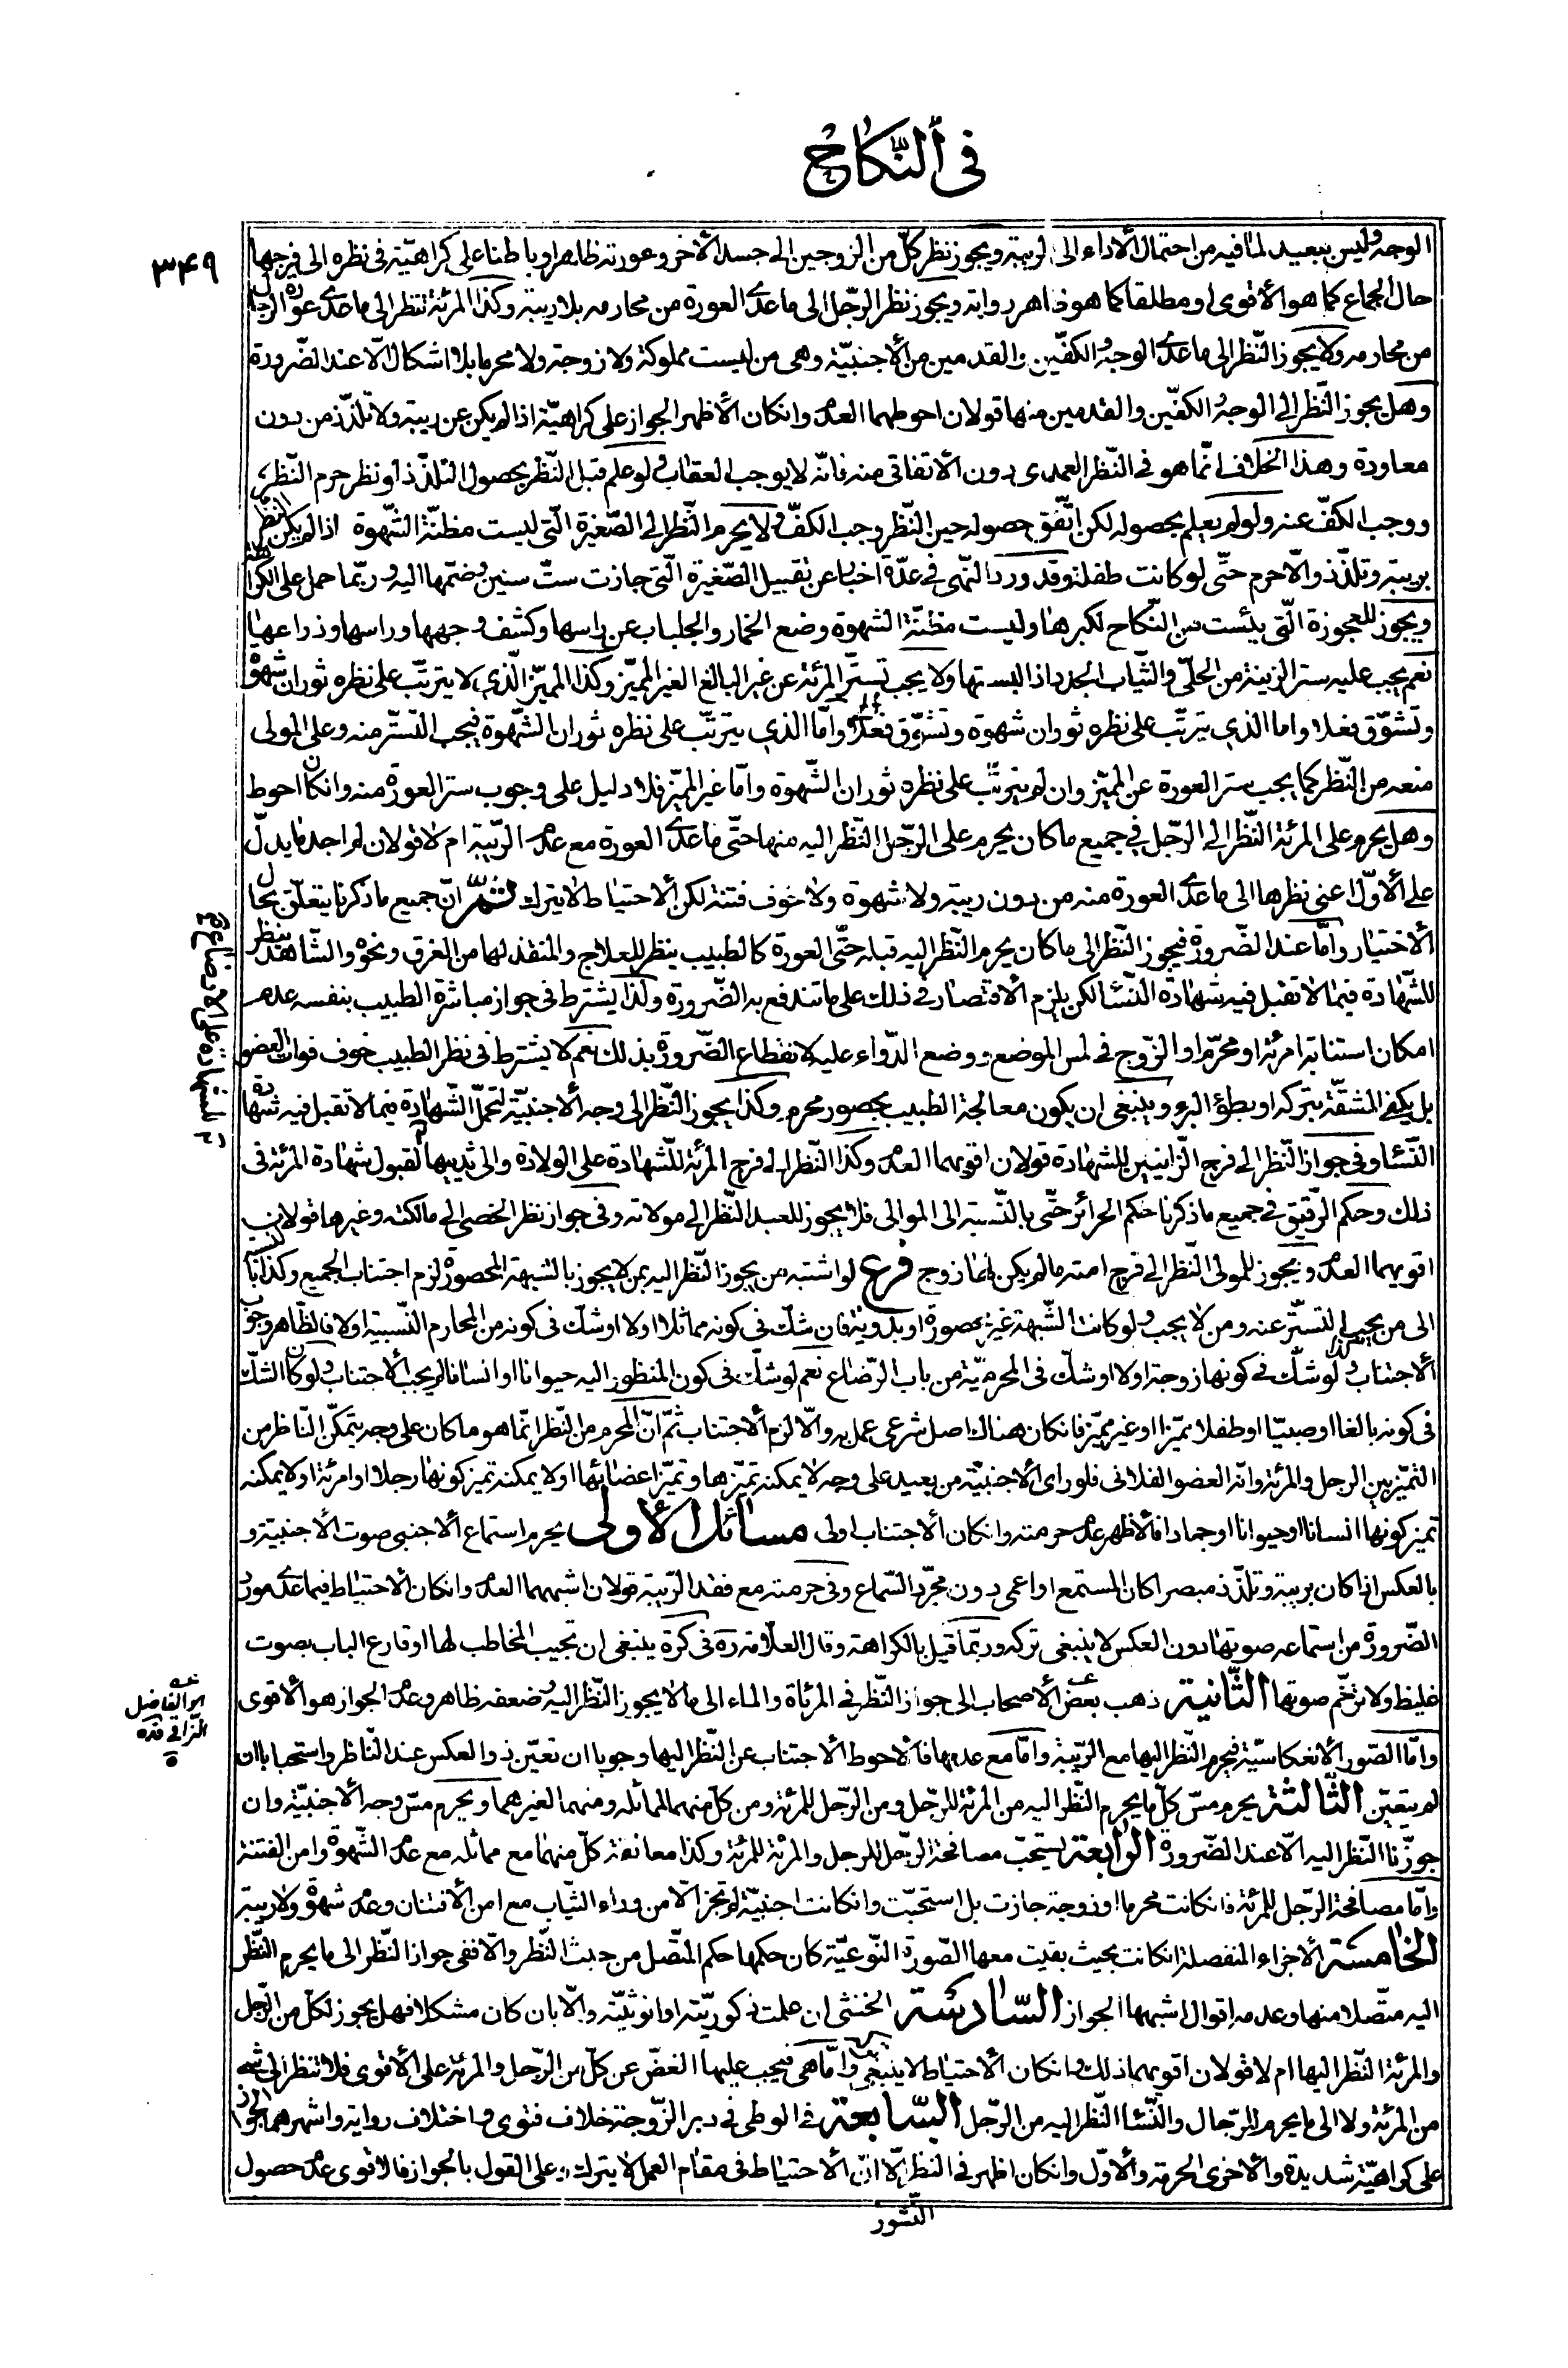 في النكاح
٣٤٩
الوجه وليس ببعيد لما فيه من احتمال الاداء الى الريبة ويجوز نظر كلّ من الزوجين الى جسد الاخر وعورته ظاهرا وباطنا على كراهيّة في نظره الى فرجها
حال الجماع كما هو الاقوى او مطلقا كما هو ظاهر رواية ويجوز نظر الرّجل الى ما عدى العورة من محارمه بلا ريبة وكذا المرئة تنظر الى ما عدى عورة الرجل
من محارمه ولا يجوز النّظر الى ما عدى الوجه والكفّين والقدمين من الاجنبيّة وهى من ليست مملوكة ولا زوجة ولا محرما بلا اشكال الّا عند الضّرورة
وهل يجوز النّظر الى الوجه والكفّين والقدمين منها قولان احوطهما العدم وانكان الاظهر الجواز على كراهيّة اذا لم يكن عن ريبة ولا تلذّذ من دون
معاودة وهذا الخلاف انّما هو في النّظر العمدى دون الاتفاقى منه فانّه لا يوجب العقاب ولو علم قبل النّظر بحصول التلذّذ لو نظر حرم النّظر
ووجب الكفّ عنه ولو لم يعلم بحصوله لكن اتّفق حصوله حين النّظر وجب الكفّ ولا يحرم النّظر الى الصّغيرة الّتى ليست مظنّة الشّهوة اذا لم يكن النظر
بريبة وتلذّذ والّا حرم حتّى لو كانت طفلة وقد ورد النّهى في عدّة اخبار عن تقبيل الصّغيرة الّتى جازت ستّ سنين وضمّها اليه وربّما حمل على الكراهة
ويجوز للعجوزة الّتى يئست من النّكاح لكبرها وليست مظنّة الشهوة وضع الخمار والجلباب عن راسها وكشف وجهها وراسها وذراعها
نعم يجب عليه ستر الزينة من الحلّى والثّياب الجدد اذا البستها ولا يجب تستّر المرئة عن غير البالغ الغير المميّز وكذا المميّز الّذى لا يترتّب على نظره ثوران شهوة
وتشوّق فعلا واما الذي يترتّب على نظره ثوران شهوة وتشوّق فعلا وامّا الذى يترتّب على نظره ثوران الشّهوة فيجب التستّر منه وعلى المولى
منعه من النّظر كما يجب ستر العورة عن المميّز وان لم يترتّب على نظره ثوران الشّهوة وامّا غير المميّز فلا دليل على وجوب ستر العورة منه وانكان احوط
وهل يحرم على المرئة النّظر الى الرّجل في جميع ما كان يحرم على الرّجل النّظر اليه منها حتّى ما عدى العورة مع عدم الرّيبة ام لا قولان لم اجد ما يدلّ
على الاوّل اعنى نظرها الى ما عدى العورة منه من دون ريبة ولا شهوة ولا خوف فتنة لكن الاحتياط لا يترك ثمّ انّ جميع ما ذكرنا يتعلّق بحال
الاختيار وامّا عند الضّرورة فيجوز النّظر الى ما كان يحرم النّظر اليه قبله حتّى العورة كالطبيب ينظر للعلاج والمنقذ لهما من الغرق ونحوه والشّاهد ينظر
للشّهادة فيما لا تقبل فيه شهادة النّسا لكن يلزم الاقتصار في ذلك على ما تندفع به الضّرورة ولذا يشترط في جواز مباشرة الطبيب بنفسه عدم
امكان استنابة امرئة او محرّم او الزّوج في لمس الموضع ووضع الدّواء عليه لانقطاع الضّرورة بذلك نعم لا يشترط في نظر الطبيب خوف فوات العضو
بل يكفى المشقّة بتركه او بطؤ البرء وينبغى ان يكون معالجة الطبيب بحضور محرم وكذا يجوز النّظر الى وجه الاجنبيّة لتحمّل الشّهادة فيما لا تقبل فيه شهادة
النّسا وفي جواز النّظر الى فرج الزّانيين للشهادة قولان اقويهما العدم وكذا النّظر الى فرج المرئة للشّهادة على الولادة والى ثديها لقبول شهادة المرئة في
ذلك وحكم الرّقيق في جميع ما ذكرنا حكم الحرائر حتّى بالنّسبة الى الموالى فلا يجوز للعبد النّظر الى مولاته وفي جواز نظر الخصى الى مالكته وغيرها قولان
اقويهما العدم ويجوز للمولى النّظر الى فرج امته ما لم يكن لها زوج فرع لو اشتبه من يجوز النّظر اليه بمن لا يجوز بالشبهة المحصورة لزم اجتناب الجميع وكذا بالنسبة
الى من يجب التستّر عنه ومن لا يجب ولو كانت الشّبهة غير محصورة او بدويّة فان شكّ في كونه مماثلا اولا او شكّ في كونه من المحارم النّسبية اولا فالظّاهر وجوب
الاجتناب وكذا لو شكّ في كونها زوجة اولا او شكّ في المحرميّة من باب الرّضاع نعم لو شكّ في كون المنظور اليه حيوانا او انسانا لم يجب الاجتناب ولو كان الشكّ
في كونه بالغا او صبيّا او طفلا مميّزا او غير مميّز فانكان هناك اصل شرعى عمل به والّا لزم الاجتناب ثمّ انّ المحرم من النّظر انّما هو ما كان على وجه يتمكّن النّاظر من
التميّز بين الرجل والمرئة وانّه العضو الفلانى فلو راى الاجنبيّة من بعيد على وجه لا يمكنه تميّزها وتميّز اعضائها او لا يمكنه تميز كونها رجلا او امرئة او لا يمكنه
تميز كونها انسانا او حيوانا او جمادا فالاظهر عدم حرمته وانكان الاجتناب اولى مسائل الاولى يحرم استماع الاجنبى صوت الاجنبية و
بالعكس اذا كان بريبة وتلذّذ مبصرا كان المستمع او اعمى دون مجرّد السّماع وفي حرمته مع فقد الرّيبة قولان اشبههما العدم وانكان الاحتياط فيما عدى مورد
الضّرورة من استماعه صوتها دون العكس لا ينبغى تركه وربّما قيل بالكراهة وقال العلّامة ره في كرة ينبغى ان تجيب المخاطب لها او قارع الباب بصوت
غليظ ولا ترخّم صوتها الثّانية ذهب بعض الاصحاب الى جواز النّظر في المرءاة والماء الى ما لا يجوز النّظر اليه وضعفه ظاهر وعدم الجواز هو الاقوى
وامّا الصّور الانعكاسيّة فيحرم النّظر اليها مع الرّيبة وامّا مع عدمها فالاحوط الاجتناب عن النّظر اليها وجوبا ان تعيّن ذو العكس عند النّاظر واستحبابا ان
لم يتعيّن الثّالثة يحرم مسّ كلّ ما يحرم النّظر اليه من المرئة للرّجل ومن الرّجل للمرئة ومن كلّ منهما لمماثله ومنهما لغيرهما ويحرم مسّ وجه الاجنبيّة وان
جوّزنا النّظر اليه الّا عند الضّرورة الرّابعة يستحبّ مصافحة الرّجل للرجل والمرئة للمرئة وكذا معانقة كلّ منهما مع مماثله مع عدم الشّهوة وامن الفتنة
وامّا مصافحة الرّجل للمرئة فانكانت محرما او زوجة جازت بل استحبّت وانكانت اجنبيّة لم تجز الّا من وراء الثّياب مع امن الافتتان وعدم شهوة ولا ريبة
الخامسة الاجزاء المنفصلة انكانت بحيث بقيت معها الصّورة النّوعيّة كان حكمها حكم المتّصل من حيث النّظر والّا ففى جواز النّظر الى ما يحرم النّظر
اليه متّصلا منها وعدمه اقوال اشبهها الجواز السّادسة الخنثى ان علمت ذكوريّته او انوثيّته والّا بان كان مشكلا فهل يجوز لكلّ من الرّجل
والمرئة النّظر اليها ام لا قولان اقويهما ذلك وانكان الاحتياط لا ينبغى وامّا هى فيجب عليها الغضّ عن كلّ من الرّجل والمرئة على الاقوى فلا تنظر الى شىء
من المرئة ولا الى ما يحرم للرّجال والنّسا النّظر اليه من الرّجل السّابعة في الوطى في دبر الزّوجة خلاف فتوى واختلاف رواية واشهرهما الجواز
على كراهيّة شديدة والاخرى الحرمة والاوّل وانكان اظهر في النظر الّا انّ الاحتياط في مقام العمل لا يترك وعلى القول بالجواز فالاقوى عدم حصول
النّشوز
للشهادة على الارضاع
هو الفاضل
النراقي قده